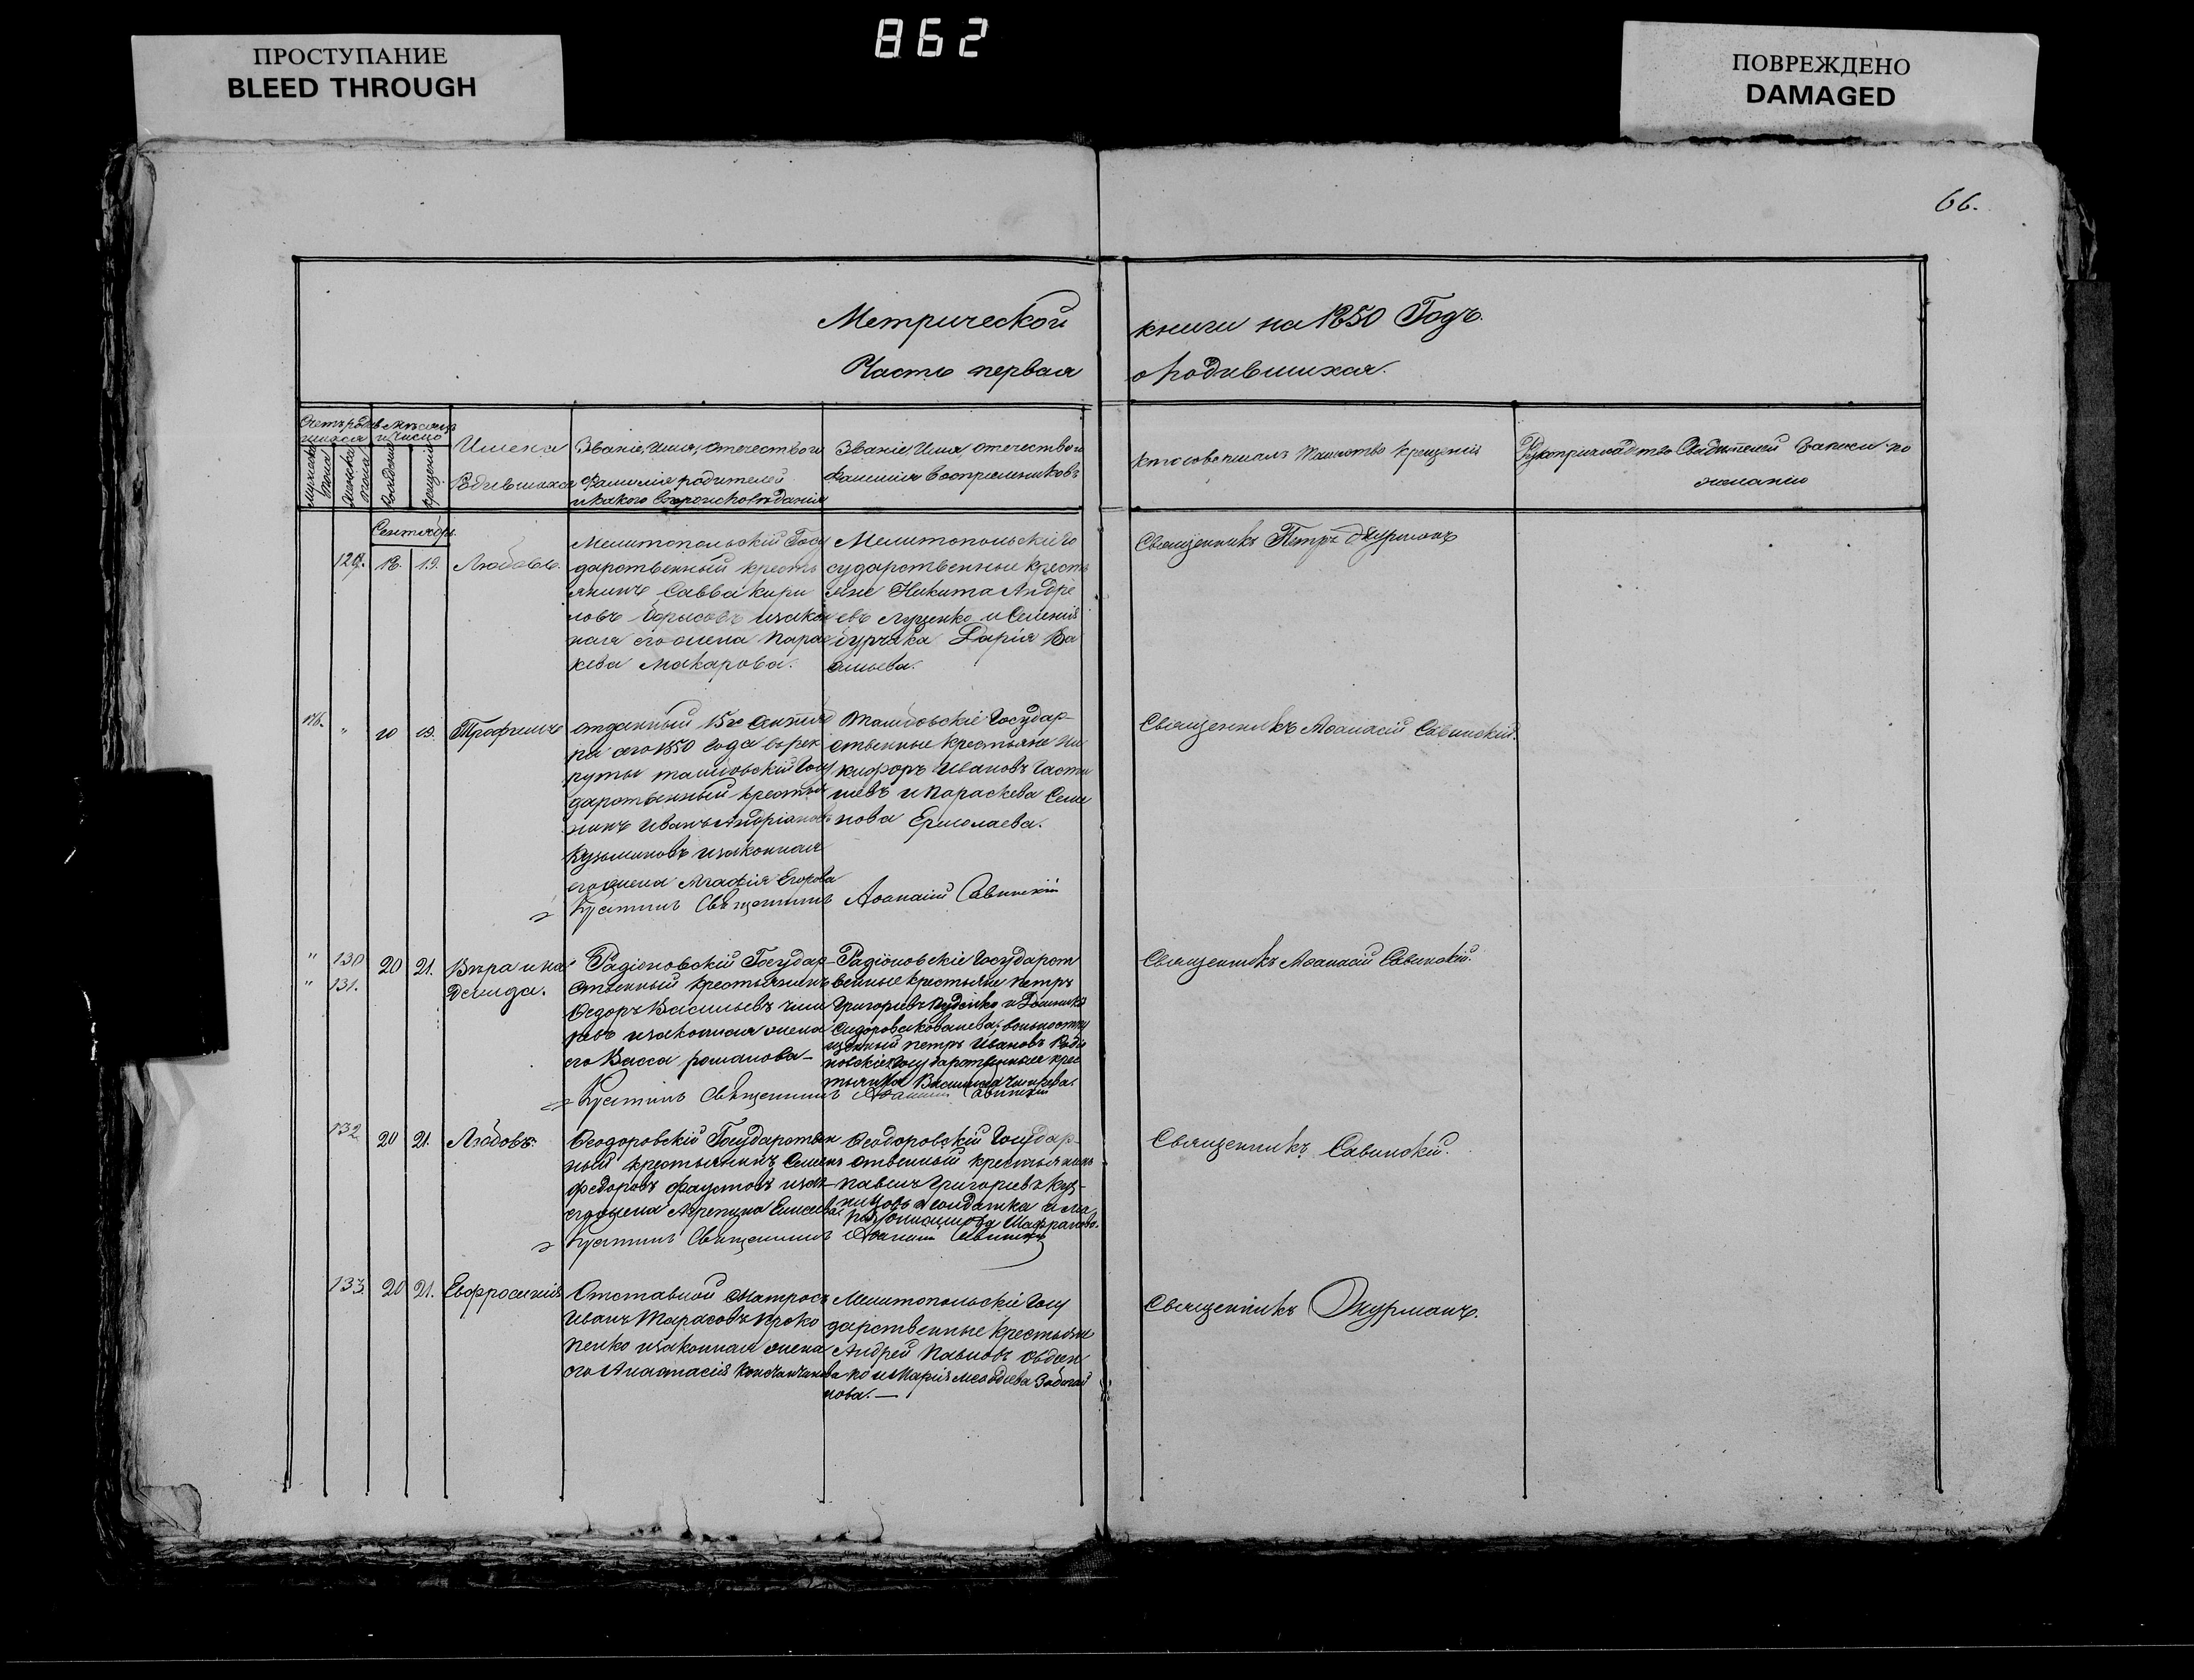 862
ПРОСТУПАНИЕ
BLEED THROUGH
ПОВРЕЖДЕНО
DAMAGED
66.
Метрической книги на 1850 Годъ.
Часть первая о родившихся.
Имена
родившихся
Званіе, имя, отечество и
фамилія родителей
и какого вероисповѣданія
Званіе Имя, отечество и
фамилія воспріемниковъ
Кто совершалъ таинство крещенія
Рукоприкладство Свидѣтелей записи по
желанію
Сентябрь.
129. 18. 19. Любовь.
Мелитопольскій Госу
дарственный кресть
янинъ Савва Кири
ловъ Борисовъ и закон
ная его жена Парас
кева Макарова.
Мелитопольскіе Го
сударственные кресть
яне Никита Андре
евъ Луценко и
Дарія Ва
сильева.
Священникъ Петръ Журманъ
" 10 19. Трофимъ
отданный 15го сентяб
ря сего 1850 года въ рек
руты тамбовскій Госу
дарственный крестья
нинъ Иванъ Андріановъ
Кузьминовъ и законная
его жена Агафія Егорова
Тамбовскіе Государ-
ственные крестьяне Ни
кифоръ Ивановъ
и Параскева Семе
нова Ермолаева.
Крестилъ Священникъ Аѳанасій Савинскій
Священникъ Аѳанасій Савинскій.
" 130 20 21. Вѣра и На
" 131. дежда.
Радіоновскій Государ-
ственный крестьянинъ
Ѳедоръ Васильевъ
и законная жена
его Васса Романова-
Радіоновскіе Государст
венные крестьяне Петръ
Григорьевъ и
вольноотпу
щенный Петръ Ивановъ
Государственная крес
тьянка
Крестилъ Священникъ Аѳанасій Савинскій
Священникъ Аѳанасій Савинскій.
132 20 21. Любовь.
Ѳеодоровскій Государствен
ный крестьянинъ Семенъ
Федоровъ Фаустовъ и зак-
его жена Агрепина Елисеева
Ѳеодоровскій Государ-
ственный крестьянинъ
Павелъ Григорьевъ Куз-
нецовъ и солдатка
Крестилъ Священникъ Аѳанасій Савинскій
Священникъ Савинскій.
133. 20 21. Евфросинія
Отставной матросъ
Иванъ Тарасовъ Проко
пенко и законная жена
его Анастасія
Мелитопольскіе Госу
дарственные крестьяне
Андрей Павловъ Овдіен
ко и Марія
нова.—
Священникъ Журманъ.